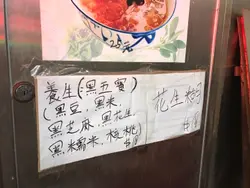 25元
養生(黑五寶)
(黑豆、黑米
黑芝麻、黑花生、
黑糯米、核桃)
花生糊